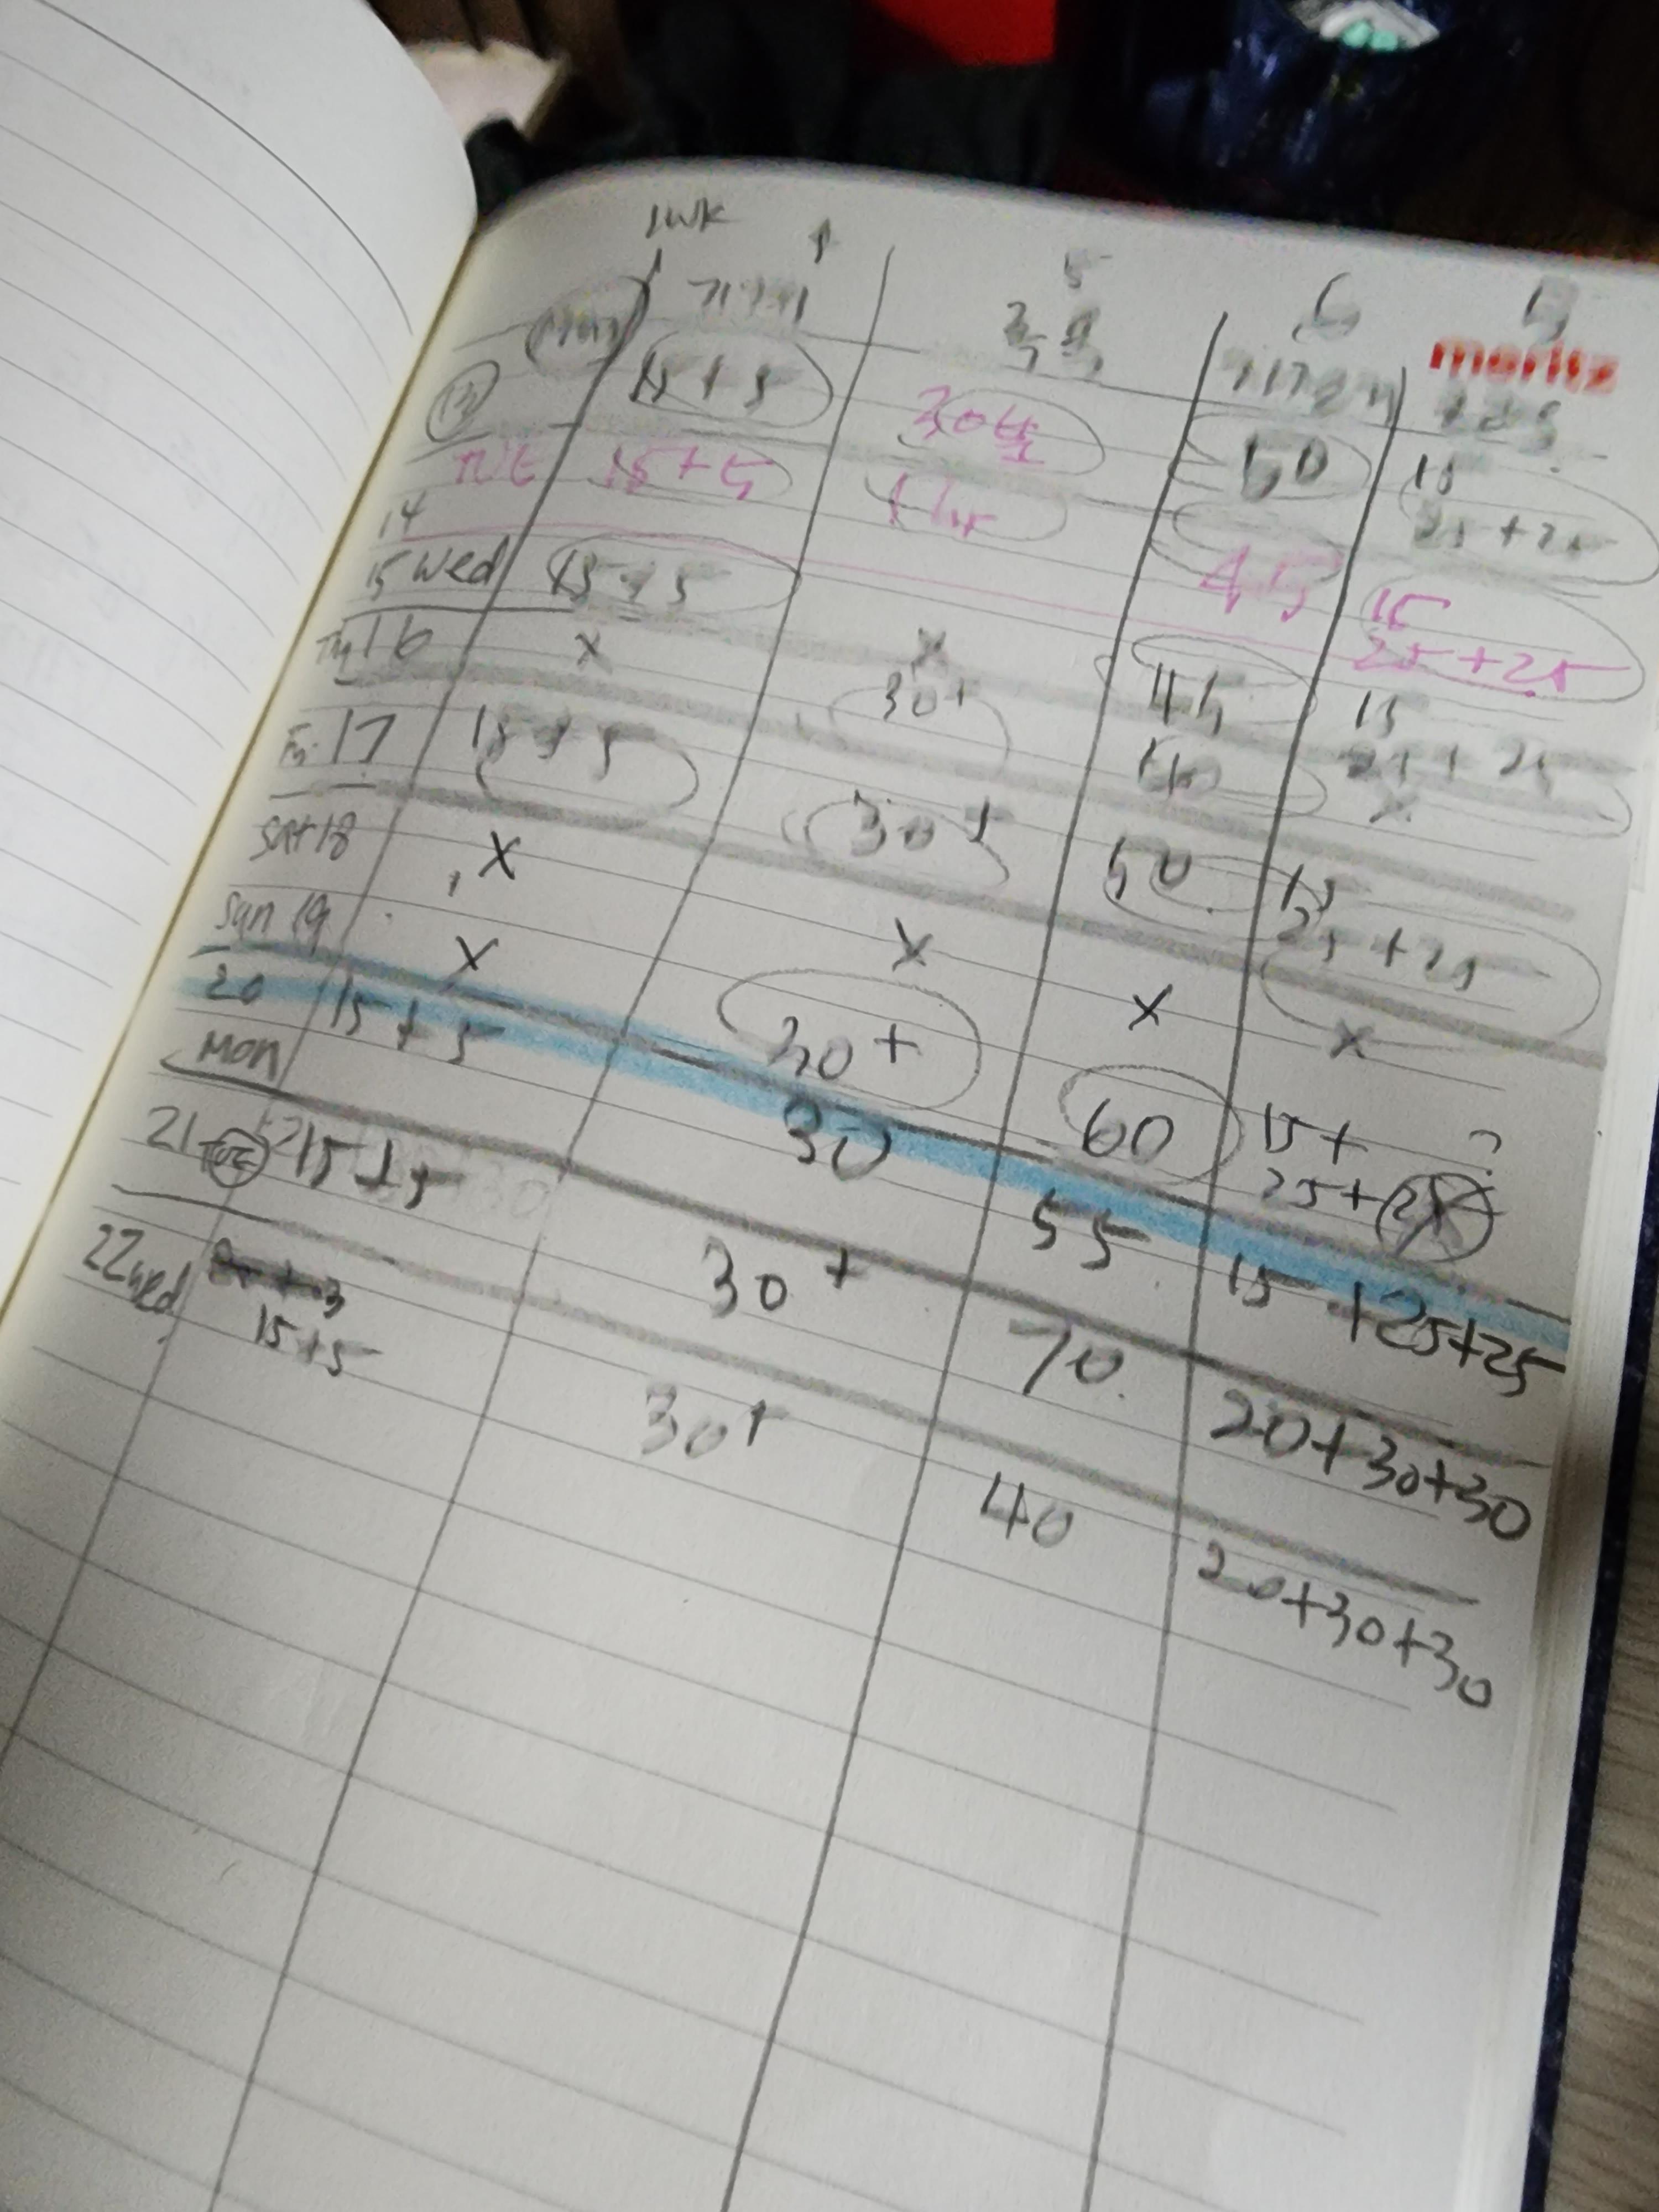 1wk
5
6
moritz
13
15+5
30분
50
15
25+25
TUE
15+5
1hr
45
15
25+25
14
15 Wed
15+5
x
45
15
25+25
16
x
30+
60
x
Fri 17
15+5
30+
50
15
25+25
Sat 18
x
x
x
x
Sun 19
x
30+
60
15+ ?
25+
20
Mon
15+5
30
55
15+25+25
21
15+5
30+
70
20+30+30
22 Wed
15+5
30+
40
20+30+30